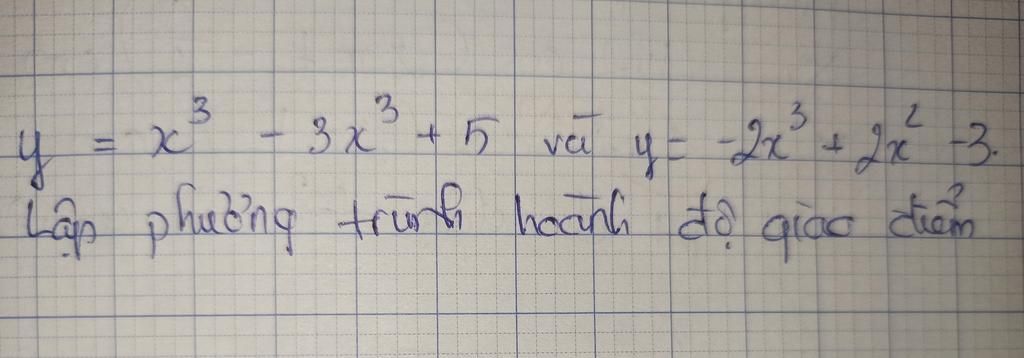 y = x³ - 3x³ + 5 và y = -2x³ + 2x² - 3.
Lập phương trình hoành độ giao điểm